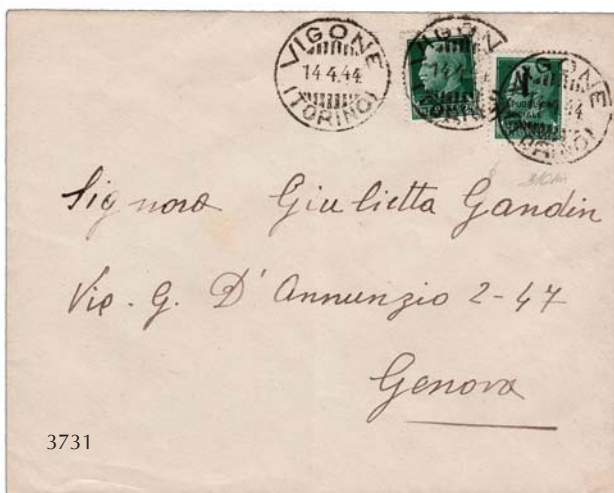 VIGONE
14.4.44
(TORINO)
VIGON
VIGONE
44
Signora Giulietta Gandin
Via. G. D'Annunzio 2-47
Genova
3731